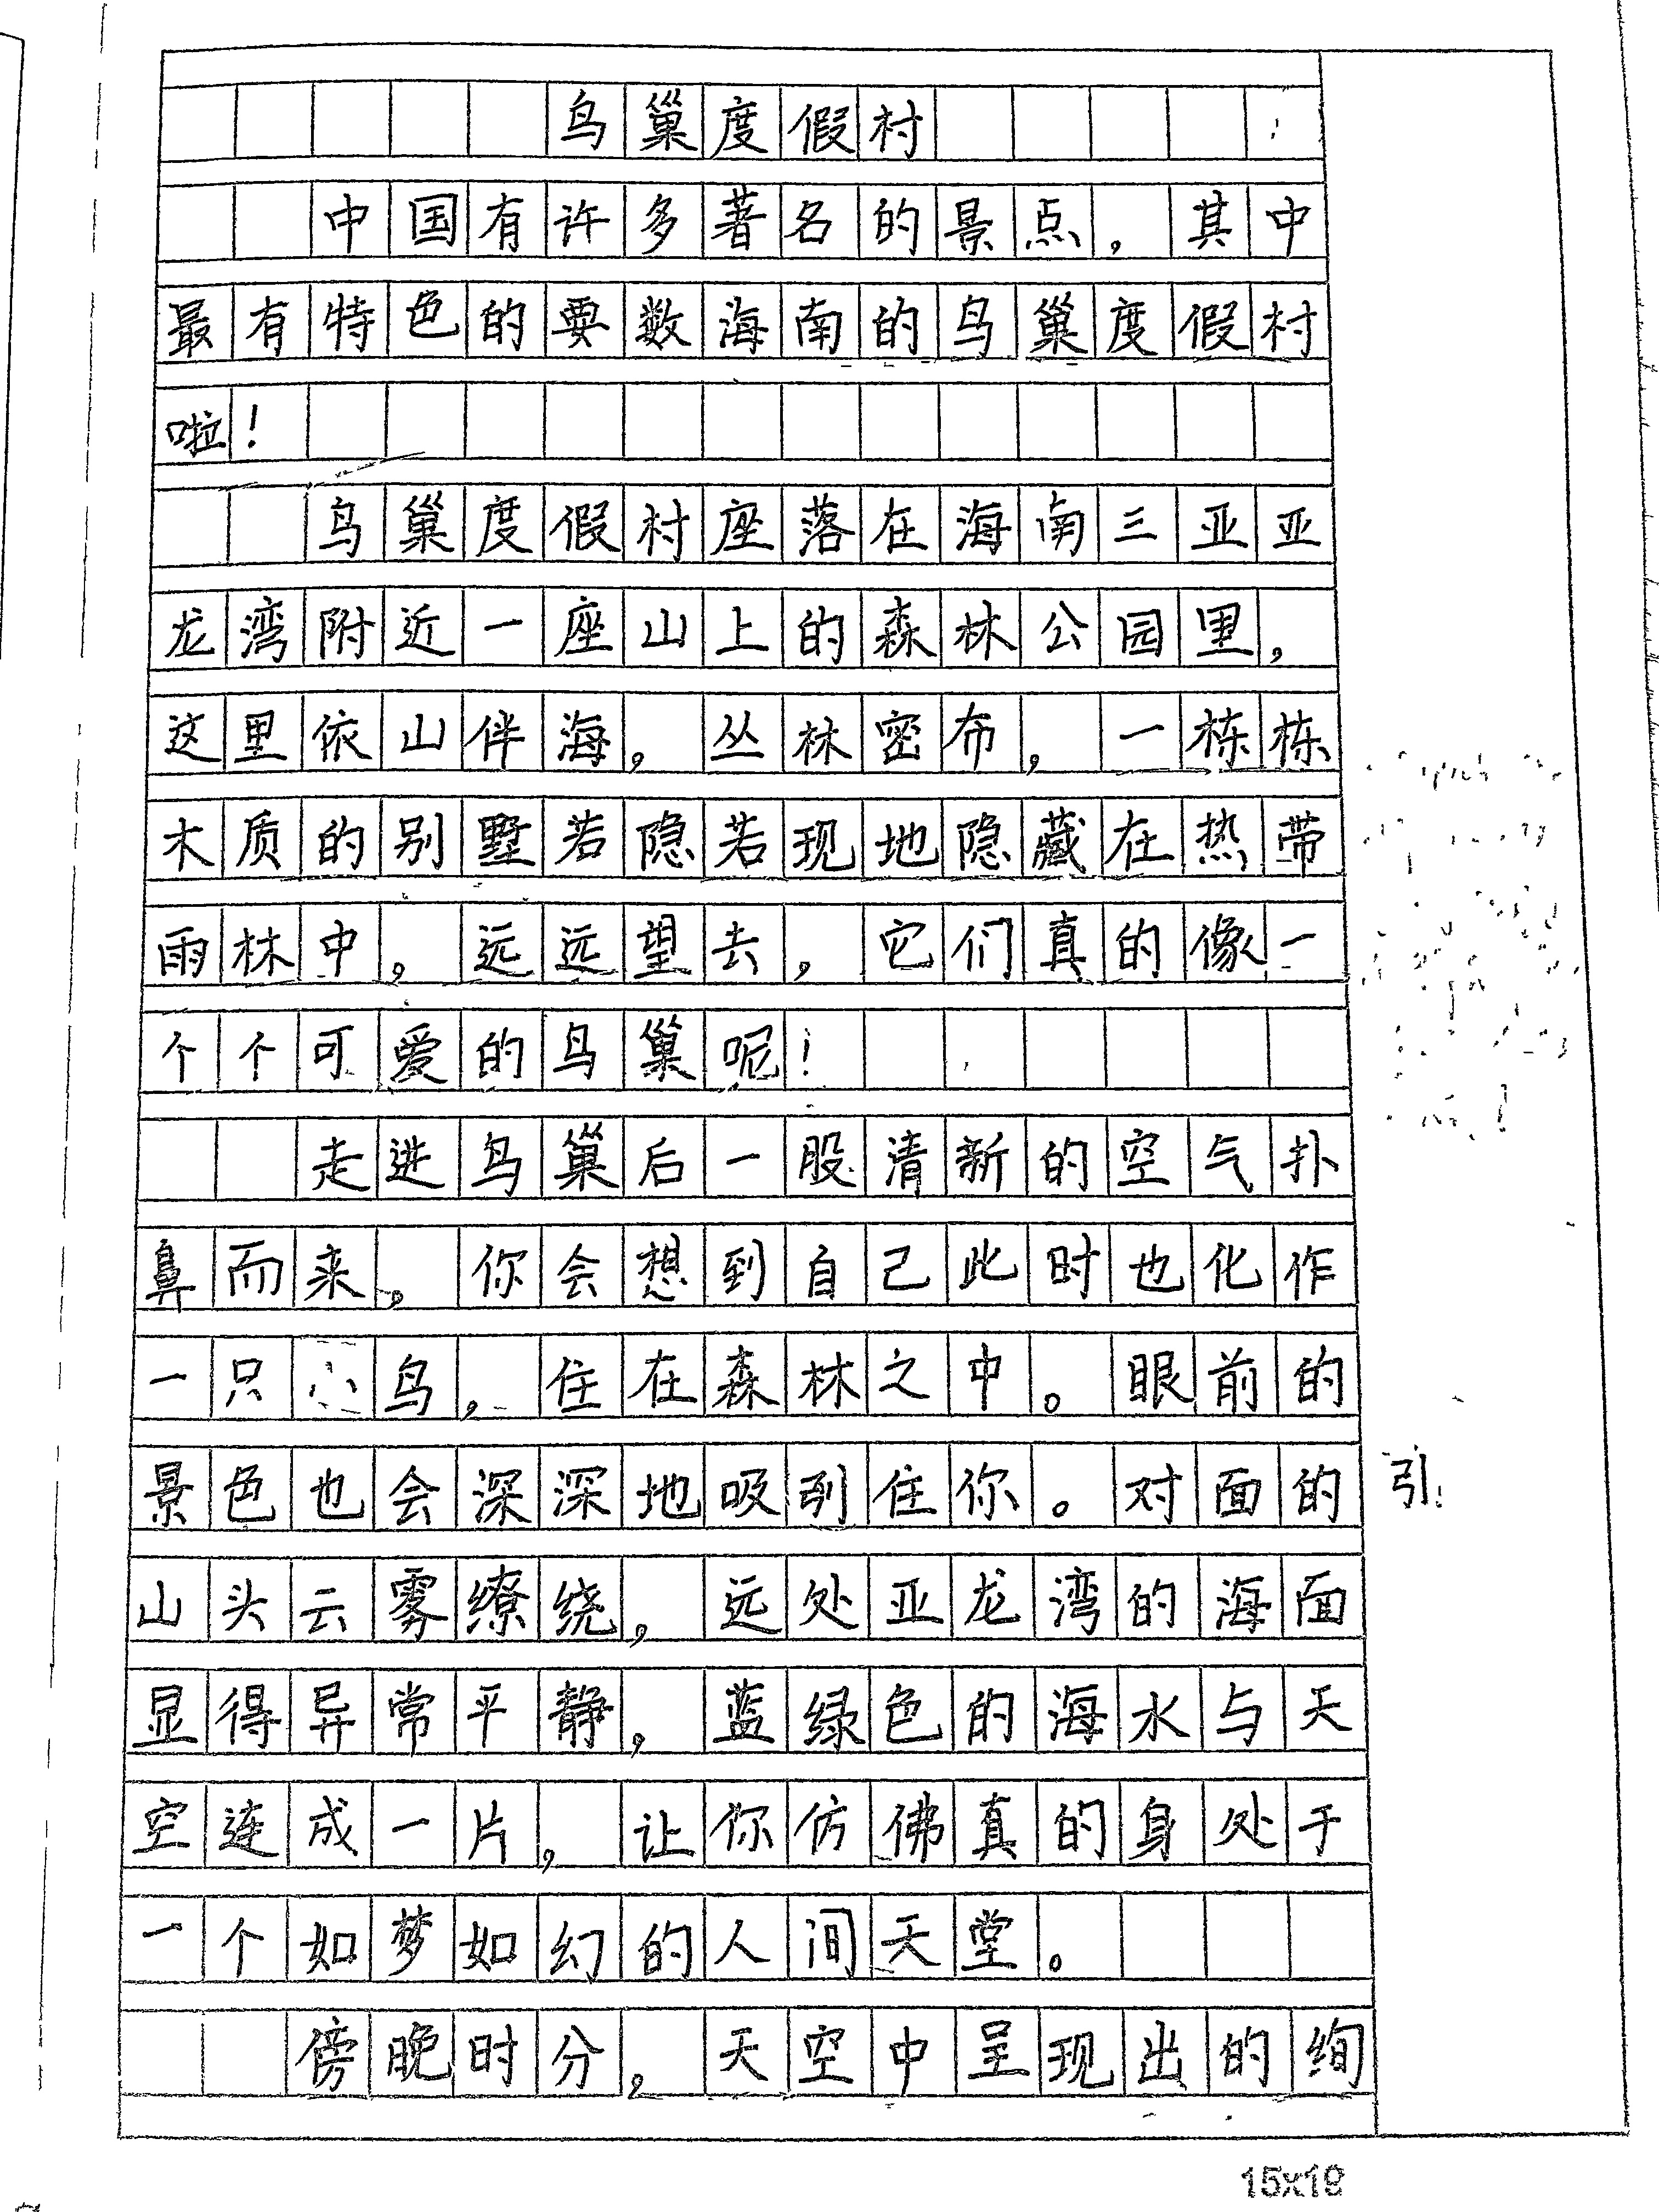 鸟巢度假村
中国有许多著名的景点，其中
最有特色的要数海南的鸟巢度假村
啦！
鸟巢度假村座落在海南三亚亚
龙湾附近一座山上的森林公园里，
这里依山伴海，丛林密布，一栋栋
木质的别墅若隐若现地隐藏在热带
雨林中，远远望去，它们真的像一
个个可爱的鸟巢呢！
走进鸟巢后一股清新的空气扑
鼻而来。你会想到自己此时也化作
一只小鸟，住在森林之中。眼前的
景色也会深深地吸引住你。对面的
引
山头云雾缭绕，远处亚龙湾的海面
显得异常平静，蓝绿色的海水与天
空连成一片，让你仿佛真的身处于
一个如梦如幻的人间天堂。
傍晚时分，天空中呈现出的绚
15x19